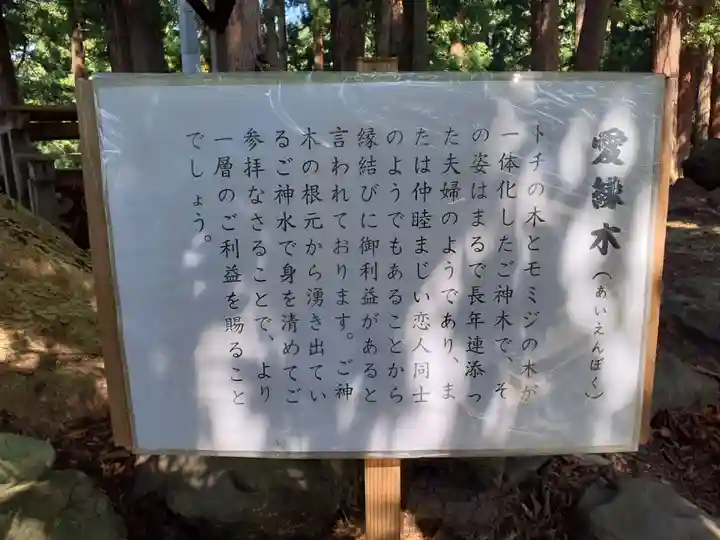 愛縁木(あいえんぼく)
トチの木とモミジの木が
一体化したご神木で、そ
の姿はまるで長年連添っ
た夫婦のようであり、ま
たは仲睦まじい恋人同士
のようでもあることから
縁結びに御利益があると
言われております。ご神
木の根元から湧き出てい
るご神水で身を清めてご
参拝なさることで、より
一層のご利益を賜ること
でしょう。